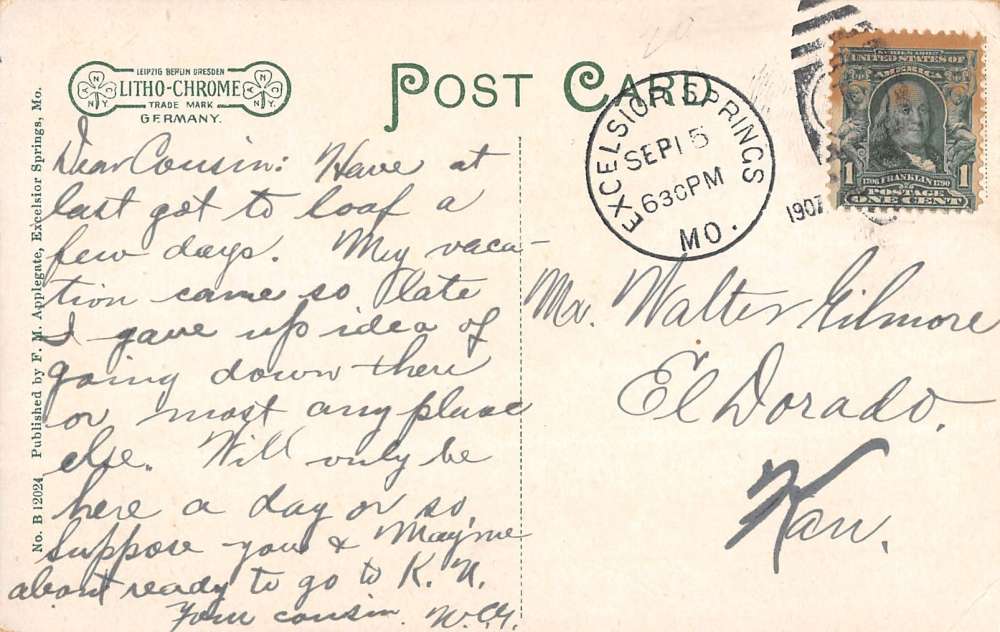 LEIPZIG BERLIN DRESDEN
LITHO-CHROME
TRADE MARK
GERMANY.
POST CARD
EXCELSIOR SPRINGS
SEP 15
630 PM
MO.
1907
SERIES 1902
UNITED STATES OF
AMERICA
1 1
1706 FRANKLIN 1790
POSTAGE
ONE CENT
No. B 12024 Published by F. M. Applegate, Excelsior Springs, Mo.
Dear Cousin: Have at
last got to loaf a
few days. My vaca-
tion came so late
I gave up idea of
going down there
or most any place
else. Will only be
here a day or so
Suppose you & Mayme
about ready to go to K. N.
Your cousin. W.C.G.
Mr. Walter Gilmore
El Dorado,
Kan.